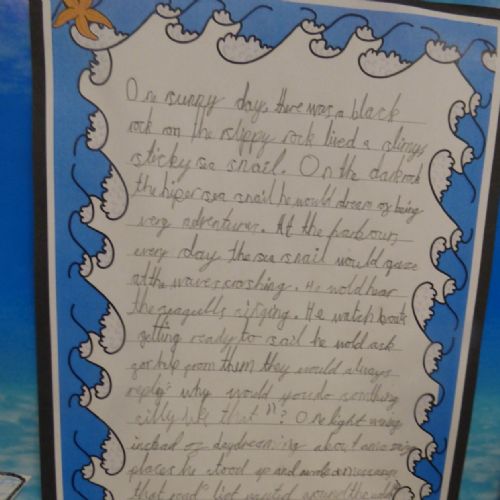 One sunny day, there was a black
rock on the slippy rock lived a slimy,
sticky sea snail. On the dark rock
the hiper sea snail he would dream of being
very adventures. At the
every day the sea snail would gaze
at the waves crashing. He wold hear
the seagulls. He watch boats
getting ready to sail he wold ask
for help from them they would always
reply " why would you do somthing
silly like that "? One
instead of daydreaming about amazing
places he stood up and made a
that read "lift wanted around the